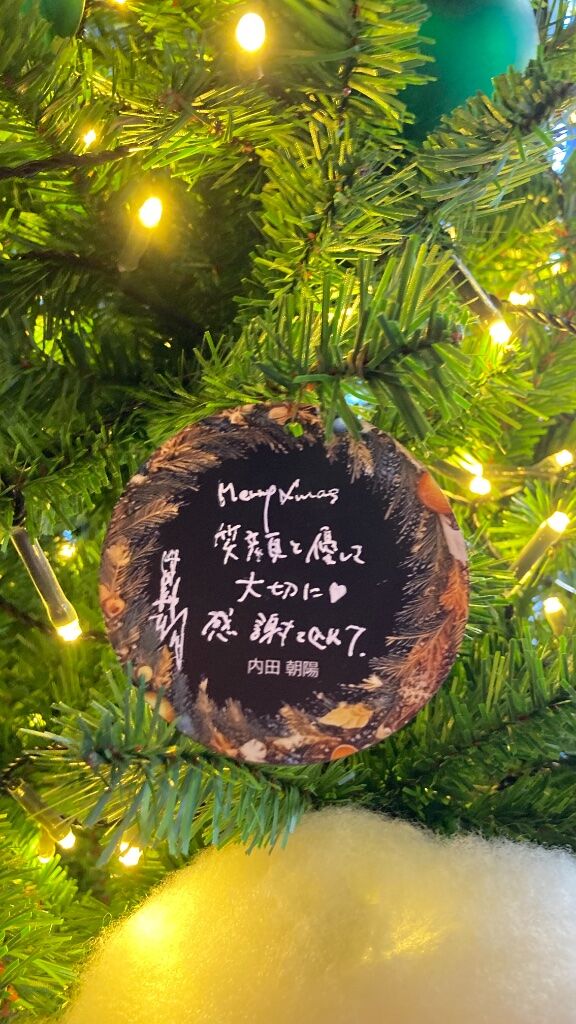 Merry Xmas
笑顔と優しさ
大切に♥
感謝をこめて
内田 朝陽